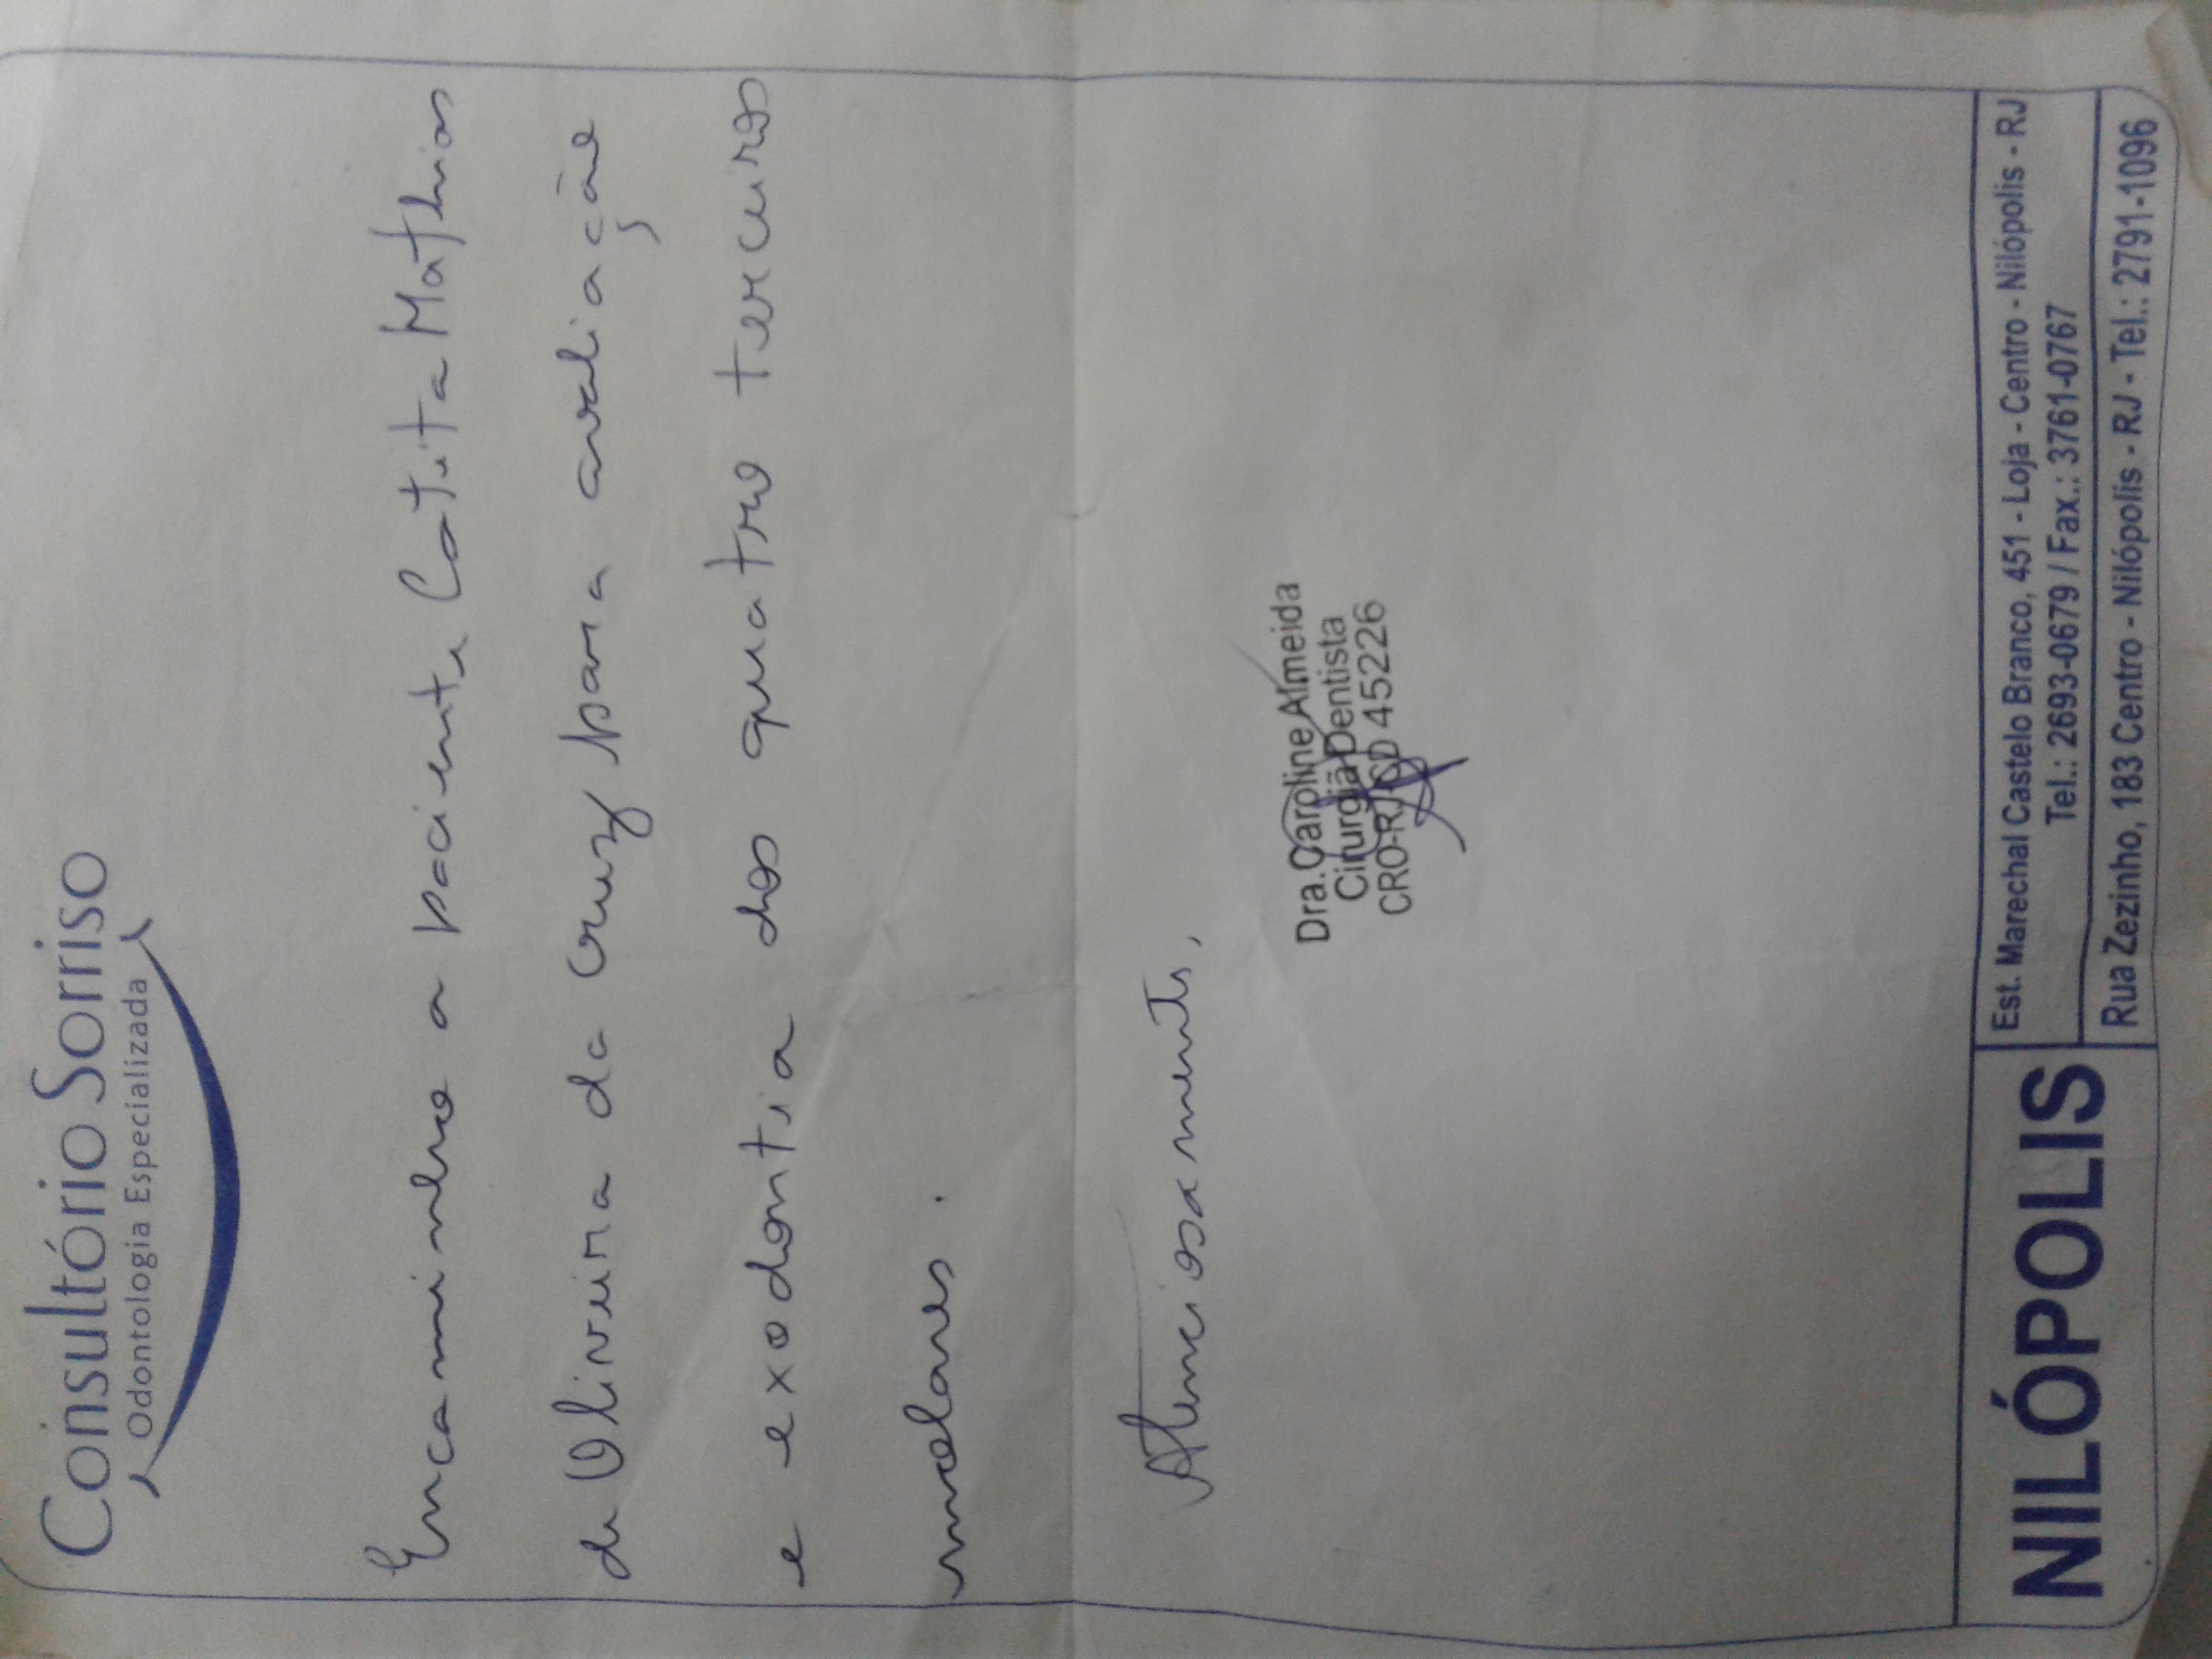 Consultório Sorriso
Odontologia Especializada
Encaminho a paciente Catita Mathias
de Oliveira da Cruz para avaliação
e exodontia dos quatro terceiros
molares.
Atenciosamente,
Dra. Caroline Almeida
Cirurgiã Dentista
CRO-RJ-CD 45226
NILÓPOLIS
Est. Marechal Castelo Branco, 451 - Loja - Centro - Nilópolis - RJ
Tel.: 2693-0679 / Fax.: 3761-0767
Rua Zezinho, 183 Centro - Nilópolis - RJ - Tel.: 2791-1096